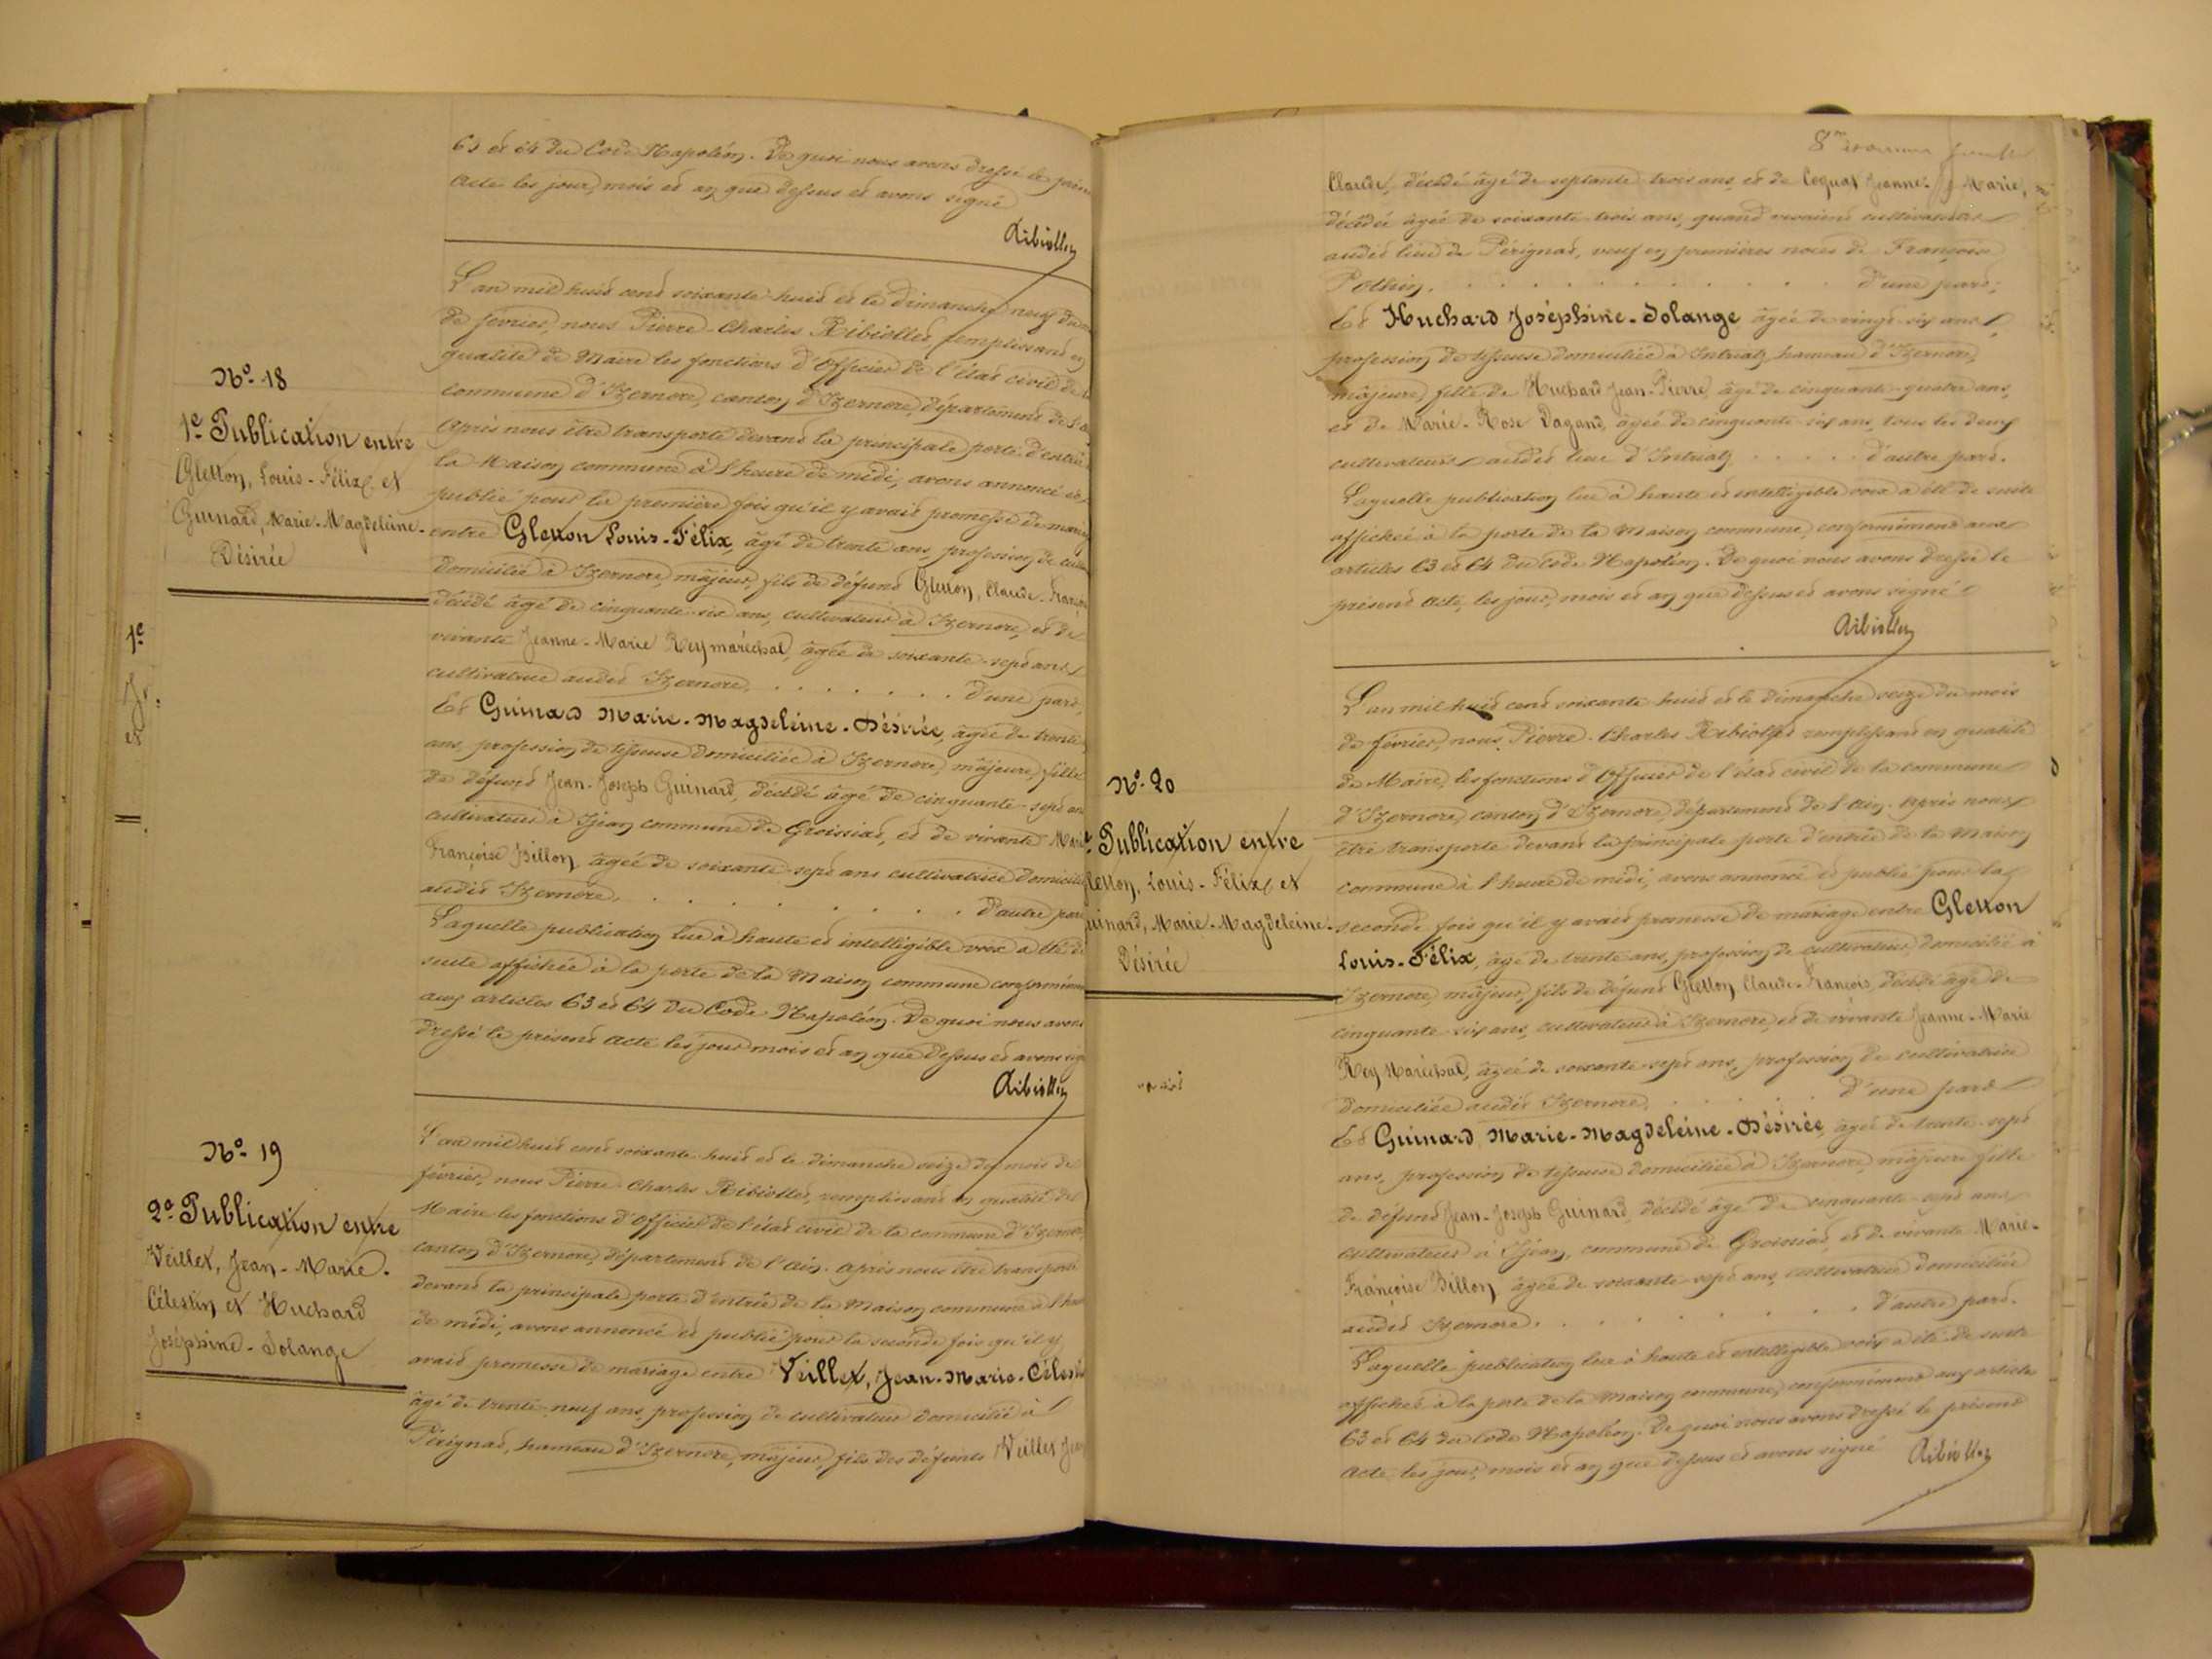 63 et 64 du Code Napoléon. De quoi nous avons dressé le
acte les jour, mois et an que dessus et avons signé
Ribiollet
N° 18
1e Publication entre
Gletton, Louis-Félix et
Guinard, Marie-Magdeleine-
Désirée
L'an mil huit cent soixante huit et le dimanche neuf du
de février, nous Pierre-Charles Ribiollet, remplissant en
qualité de Maire les fonctions d'Officier de l'état civil de la
commune d'Izernore, canton d'Izernore, département de l'Ain
Après nous être transporté devant la principale porte d'entrée
la Maison commune à l'heure de midi, avons annoncé et
publié pour la première fois qu'il y avait promesse de
entre Gletton Louis-Félix, âgé de trente ans, profession de
domicilié à Izernore, majeur, fils de défunt Gletton, Claude-
décédé âgé de cinquante-six ans, cultivateur à Izernore, et de
vivante Jeanne-Marie Reymaréchal, âgée de soixante-sept ans
cultivatrice audit Izernore . . . . . . . d'une part,
Et Guinard Marie-Magdeleine-Désirée, âgée de trente
ans, profession de tisseuse domiciliée à Izernore, majeure, fille
de défunt Jean-Joseph Guinard, décédé âgé de cinquante-sept
cultivateur à commune de Groissiat, et de vivante
Françoise Billon âgée de soixante-sept ans cultivatrice
audit Izernore, . . . . . . . . d'autre part
Laquelle publication lue à haute et intelligible voix a été de
suite affichée à la porte de la Maison commune
aux articles 63 et 64 du Code Napoléon. De quoi nous avons
dressé le présent acte les jour mois et an que dessus et avons
Ribiollet
N° 19
2e Publication entre
Veillet, Jean-Marie-
Célestin et Huchard
Joséphine-Solange
L'an mil huit cent soixante huit et le dimanche seize du mois de
février, nous Pierre Charles Ribiollet, remplissant en qualité de
Maire les fonctions d'Officier de l'état civil de la commune d'Izernore,
canton d'Izernore, département de l'Ain. Après nous être transporté
devant la principale porte d'entrée de la Maison commune à
de midi, avons annoncé et publié pour la seconde fois qu'il y
avait promesse de mariage entre Veillet, Jean-Marie-
âgé de trente-neuf ans, profession de cultivateur domicilié à
Pérignat, hameau d'Izernore, majeur, fils des défunts Veillet
1e
et
Claude, décédé âgé de septante trois ans, et de Jeanne-Marie,
décédée âgée de soixante-trois ans, quand vivaient cultivateurs
audit lieu de Pérignat, veuf en premières noces de Françoise
Pothin. . . . . . . . . . . . d'une part;
Et Huchard Joséphine-Solange âgée de vingt-six ans,
profession de tisseuse domiciliée à Intriat, hameau d'Izernore,
majeure, fille de Huchard Jean-Pierre, âgé de cinquante-quatre ans,
et de Marie-Rose Dagand, âgée de cinquante-six ans, tous les deux
cultivateurs audit lieu d'Intriat . . . . . d'autre part.
Laquelle publication lue à haute et intelligible voix a été de suite
affichée à la porte de la Maison commune, conformément aux
articles 63 et 64 du Code Napoléon. De quoi nous avons dressé le
présent acte, les jour, mois et an que dessus et avons signé
Ribiollet
N° 20
Publication entre
Gletton, Louis-Félix et
Guinard, Marie-Magdeleine-
Désirée
L'an mil huit cent soixante huit et le dimanche seize du mois
de février, nous Pierre-Charles Ribiollet remplissant en qualité
de Maire, les fonctions d'Officier de l'état civil de la commune
d'Izernore, canton d'Izernore, département de l'Ain. Après nous
être transporté devant la principale porte d'entrée de la Maison
commune à l'heure de midi, avons annoncé et publié pour la
seconde fois qu'il y avait promesse de mariage entre Gletton
Louis-Félix, âgé de trente ans, profession de cultivateur, domicilié à
Izernore, majeur, fils de défunt Gletton Claude-François, décédé âgé de
cinquante-six ans, cultivateur à Izernore, et de vivante Jeanne-Marie
Rey Maréchal, âgée de soixante-sept ans, profession de cultivatrice
domiciliée audit Izernore, . . . . . d'une part
Et Guinard Marie-Magdeleine-Désirée âgée de trente-sept
ans, profession de tisseuse domiciliée à Izernore, majeure fille
de défunt Jean-Joseph Guinard, décédé âgé de cinquante-sept ans
cultivateur à commune de Groissiat, et de vivante Marie-
Françoise Billon âgée de soixante-sept ans, cultivatrice domiciliée
audit Izernore. . . . . . . . d'autre part.
Laquelle publication lue à haute et intelligible voix a été de suite
affichée à la porte de la Maison commune, conformément aux articles
63 et 64 du Code Napoléon. De quoi nous avons dressé le présent
acte, les jour, mois et an que dessus et avons signé Ribiollet